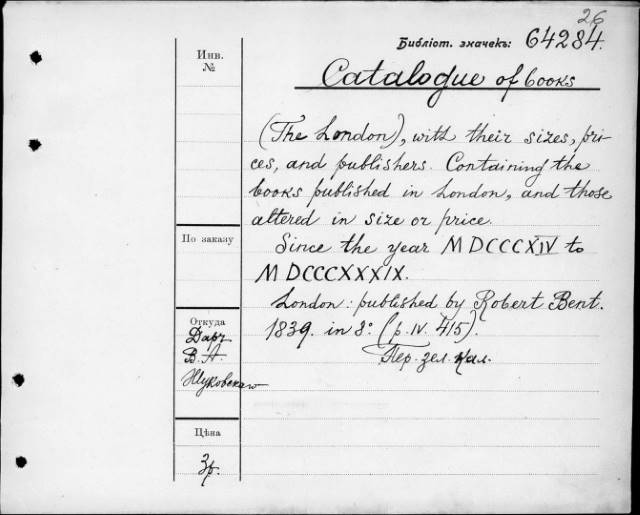 26
Библіот. значекъ: 64284.
Инв.
№
Catalogue of books
(The London), with their sizes, pri-
ces, and publishers. Containing the
books published in London, and those
altered in size or price.
По заказу
Since the year MDCCCXIV to
MDCCCXXXIX.
London: published by Robert Bent.
Откуда
1839. in 8º. (p. IV. 415).
Даръ
В. А.
Жуковскаго
Пер. зел. кал.
Цѣна
3р.